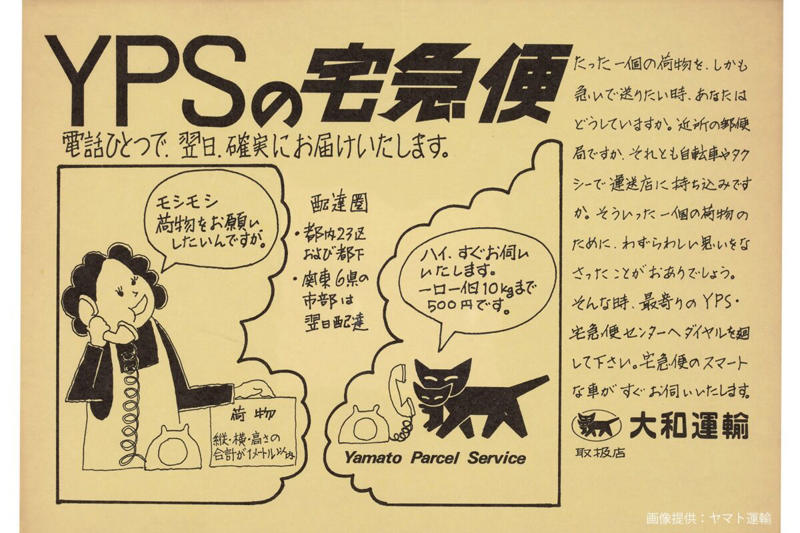 YPSの宅急便
電話ひとつで、翌日、確実にお届けいたします。
モシモシ
荷物をお願い
したいんですが。
配達圏
・都内23区
および都下
・関東6県の
市部は
翌日配達
ハイ、すぐお伺い
いたします。
一口一個10kgまで
500円です。
荷物
縦・横・高さの
合計が1メートル以内
Yamato Parcel Service
たった一個の荷物を、しかも
急いで送りたい時、あなたは
どうしていますか。近所の郵便
局ですか、それとも自転車やタク
シーで運送店に持ち込みです
か。そういった一個の荷物の
ために、わずらわしい思いをな
さったことがおありでしょう。
そんな時、最寄りのYPS・
宅急便センターへダイヤルを廻
して下さい。宅急便のスマート
な車がすぐお伺いいたします。
大和運輸
取扱店
画像提供：ヤマト運輸